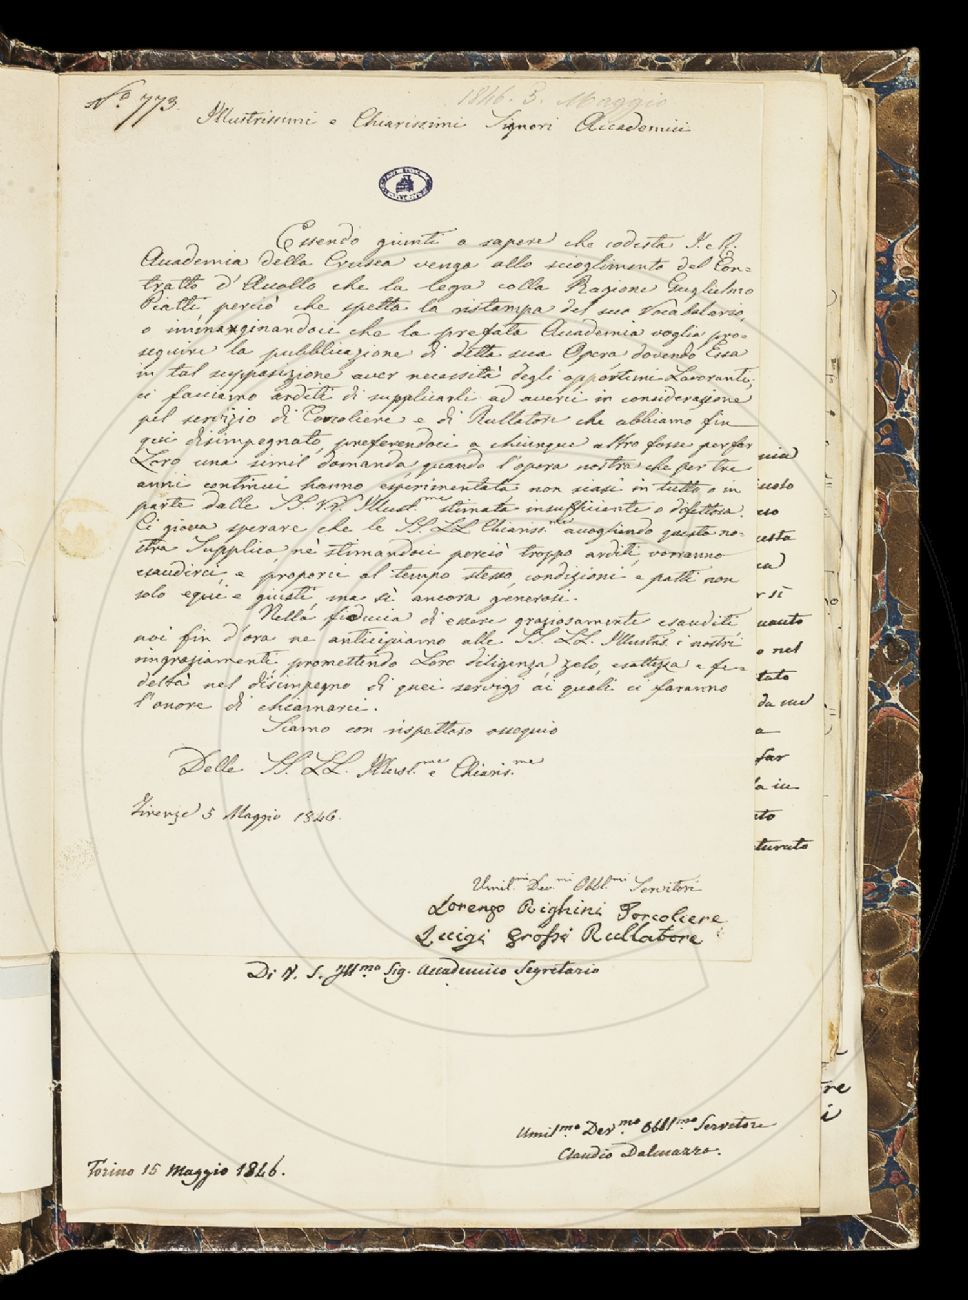 N.º 773.
1846. 5. Maggio
Illustrissimi e Chiarissimi Signori Accademici
Essendo giunti a sapere che codesta I. e R.
Accademia della Crusca venga allo scioglimento del Con-
tratto d'Accollo che la lega colla Ragione Guglielmo
Piatti perciò che spetta la ristampa del suo Vocabolario,
e immaginandoci che la prefata Accademia voglia pro-
seguire la pubblicazione di detta sua Opera dovendo Essa
in tal supposizione aver necessità degli opportuni Lavoranti,
ci facciamo arditi di supplicarli ad averci in considerazione
pel servizio di Torcoliere e di Rullatore che abbiamo fin
qui disimpegnato, preferendoci a chiunque altro fosse per far
Loro una simil domanda, quando l'opera nostra che per tre
anni continui hanno esperimentata non siasi in tutto o in
parte dalle SS. VV. Illust.me stimata insufficiente o difettosa.
Ci giova sperare che le SS. LL. Chiariss.me accogliendo questa no-
stra Supplica, nè stimandoci perciò troppo arditi, vorranno
esaudirci, e proporci al tempo stesso condizioni e patti non
solo equi e giusti ma sì ancora generosi.
Nella fiducia di essere graziosamente esauditi
noi fin d'ora ne anticipiamo alle SS. LL. Illustris. i nostri
ringraziamenti promettendo Loro diligenza, zelo, esattezza e fe-
deltà nel disimpegno di quei servigj ai quali ci faranno
l'onore di chiamarci.
Siamo con rispettoso ossequio
Delle SS. LL. Illust.me e Chiaris.me
Firenze 5 Maggio 1846.
Umil.mi Dev.mi Obbl.mi Servitori
Lorenzo Righini Torcoliere
Luigi Grossi Rullatore
Di V. S. Ill.mo Sig. Accademico Segretario
Umil.mo Dev.mo Obbl.mo Servitore
Claudio Dalmazzo.
Torino 15 Maggio 1846.